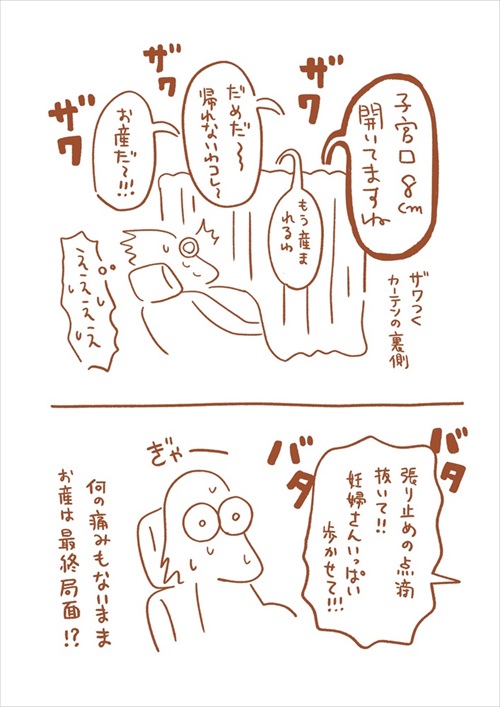 子宮口8cm
開いてますね
ザワ
もう産ま
れるわ
だめだ〜〜
帰れないわコレ〜
ザワ
お産だ〜!!!
ザワ
ええええ
ザワつく
カーテンの裏側
バタ
張り止めの点滴
抜いて!!
妊婦さんいっぱい
歩かせて!!!
バタ
ぎゃー
何の痛みもないまま
お産は最終局面!?